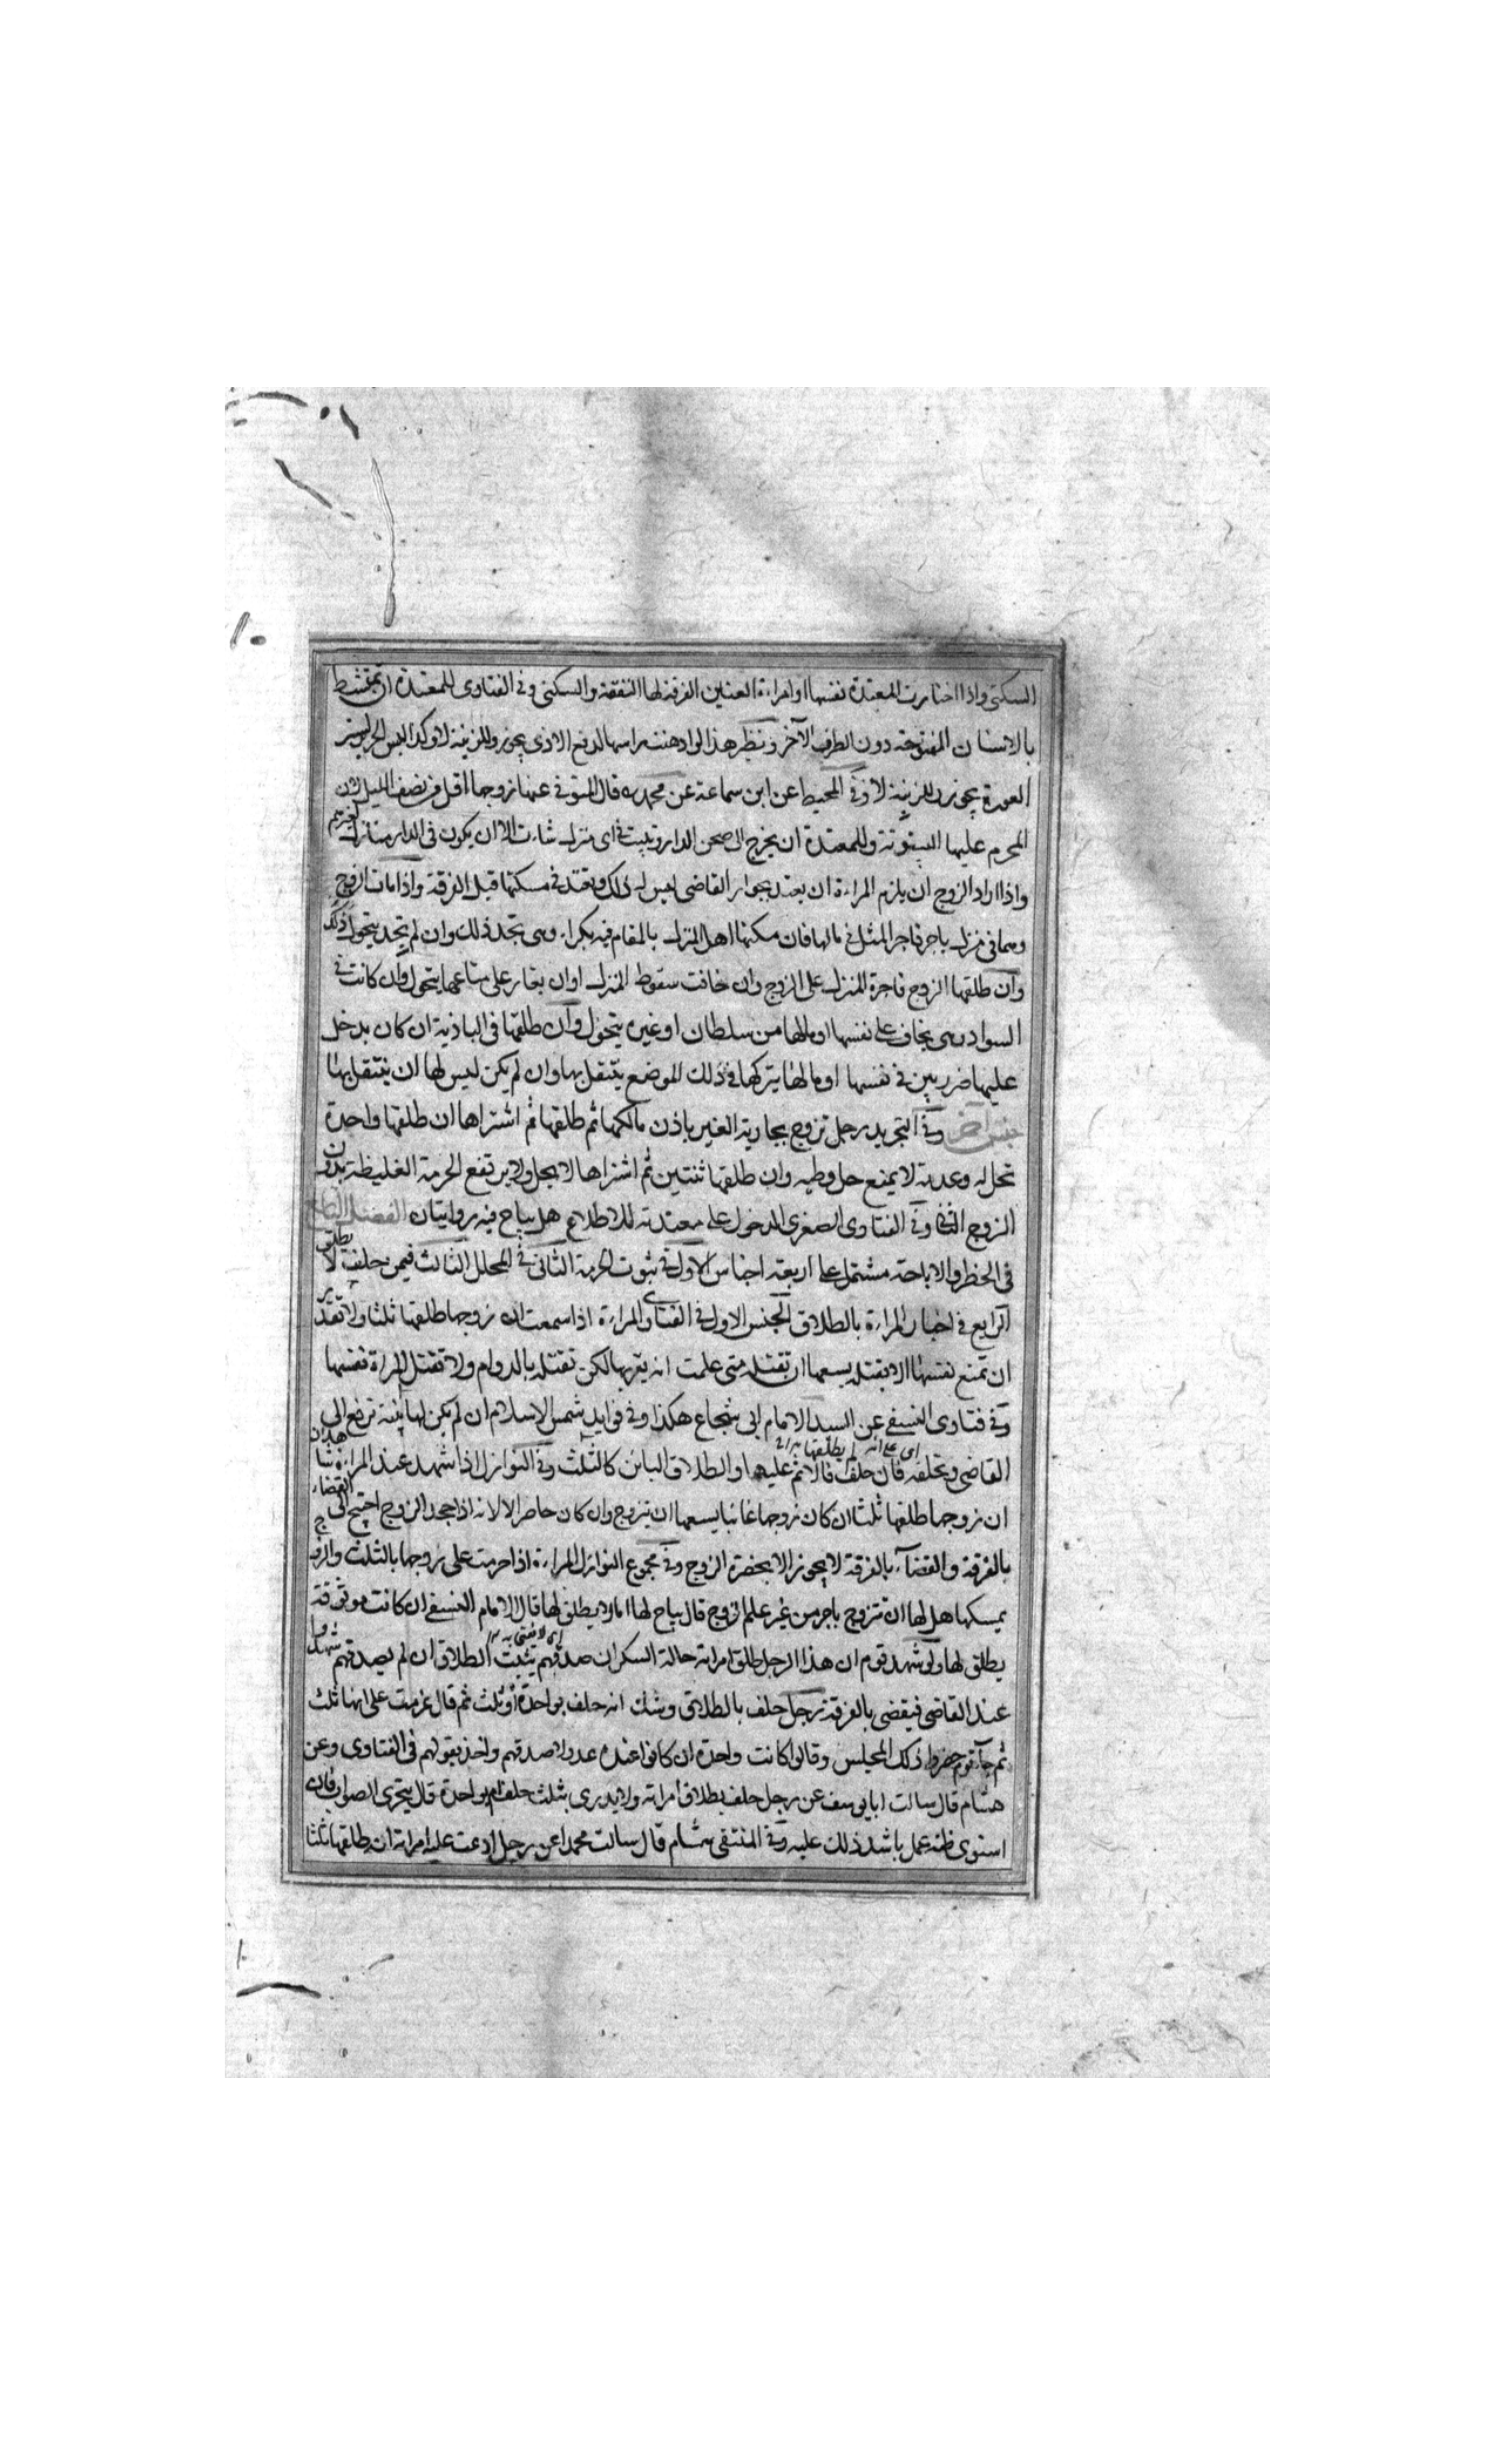 السكنى واذا اختارت المعتدة نفسها او امراءة العنين الفرقة لها النفقة والسكنى وفى الفتاوى للمعتدة ان تمتشط
بالاسنان المفتوحة دون الطرف الآخر ونظير هذا لو ادهنت راسها لدفع الاذى يجوز وللزينة لا وكذا لبس الحرير لستر
العورة يجوز وللزينة لا وفى المحيط عن ابن سماعة عن محمد ره قال المتوفى عنها زوجها اقل من نصف الليل
المحرم عليها البيتوتة وللمعتدة ان يخرج الى صحن الدار وتبيت فى اى منزل شاءت الا ان يكون فى الدار منازل لغيرهم
واذا اراد الزوج ان يلزم المراءة ان يعتد بجوار القاضى ليس له ذلك وتعتد فى مسكنها قبل الفرقة واذا مات الزوج
وهما فى منزل باجر فاجر المثل فى مالها فان مكنها اهل المنزل بالمقام فيه بكراء وهى تجد ذلك وان لم يجد يتحول
وان طلقها الزوج فاجرة المنزل على الزوج وان خافت سقوط المنزل او ان يغار على متاعها يتحول وان كانت فى
السواد وهى يخاف على نفسها او مالها من سلطان او غيره يتحول وان طلقها فى البادية ان كان يدخل
عليها ضرر بين فى نفسها او مالها يتركها فى ذلك الموضع يتنقل بها وان لم يكن ليس لها ان ينتقل بها
جنس آخر وفى التجريد رجل تزوج بجارية الغير باذن مالكها ثم طلقها ثم اشتراها ان طلقها واحدة
تحل له وعدته لا يمنع حل وطيه وان طلقها ثنتين ثم اشتراها لا يحل ولا يرتفع الحرمة الغليظة بدون
الزوج الثانى وفى الفتاوى الصغرى الدخول على معتدته للاطلاع هل يباح فيه روايتان الفصل التاسع
فى الحظر والاباحة مشتمل على اربعة اجناس الاول فى ثبوت الحرمة الثانى فى المحلل الثالث فيمن حلف لا يطلق
الرابع فى اخبار المراءة بالطلاق الجنس الاول فى الفتاوى المراءة اذا سمعت ان زوجها طلقها ثلثا ولا تقدر
ان تمنع نفسها الا بقتله يسعها ان تقتله متى علمت انه يقربها لكن تقتله بالدوام ولا تقتل المراة نفسها
وفى فتاوى النسفى عن السيد الامام ابى شجاع هكذا وفى فوايد شمس الاسلام ان لم يكن لها بينة ترفع الى
اى على انه لم يطلقها
القاضى وتحلفه فان حلف فالاثم عليه والطلاق البائن كالثلث وفى النوازل اذا شهد عند المراءة شاهدان
ان زوجها طلقها ثلثا ان كان زوجها غائبا يسعها ان يتزوج وان كان حاضرا لا لانه اذا جحد الزوج احتيج الى القضاء
بالفرقة والقضاء بالفرقة لا يجوز الا بحضرة الزوج وفى مجموع النوازل المراءة اذا حرمت على زوجها بالثلث والزوج
يمسكها هل لها ان تتزوج باخر من غير علم الزوج قال يباح لها اما لا يطلق لها قال الامام النسفى ان كانت موثوقة
اى لا يفتى به
يطلق لها ولو شهد قوم ان هذا الرجل طلق امراته حالة السكران صدقهم يثبت الطلاق ان لم يصدقهم شهدوا
عند القاضى فيقضى بالفرقة رجل حلف بالطلاق وشك انه حلف بواحدة او ثلث ثم قال عزمت على انها ثلث
ثم جاء قوم حضروا ذلك المجلس وقالوا كانت واحدة ان كانوا عنده عدولا صدقهم واخذ بقولهم فى الفتاوى وعن
هشام قال سالت ابا يوسف عن رجل حلف بطلاق امراته ولا يدرى بثلث حلف ام بواحدة قال يتحرى الصواب فان
استوى ظنه عمل باشد ذلك عليه وفى المنتقى هشام قال سالت محمدا عن رجل ادعت عليه امراته انه طلقها ثلثا